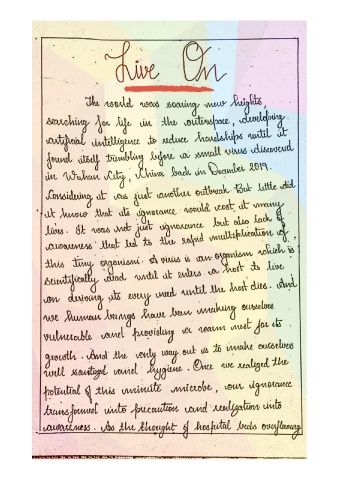 Live On
The world was soaring new heights,
searching for life in the outerspace, developing
artificial intelligence to reduce hardships until it
found itself trembling before a small virus discovered
in Wuhan City, China back in December 2019.
Considering it as just another outbreak. But little did
it know that its ignorance would cost it many
lives. It was not just ignorance but also lack of
awareness that led to the rapid multiplication of
this tiny organism. A virus is an organism which is
scientifically dead until it enters a host to live
on devoring its every need until the host dies. And
we human beings have been making ourselves
vulnerable and providing a warm meet for its
growth. And the only way out is to make ourselves
well sanitized and hygiene. Once we realized the
potential of this minute microbe, our ignorance
transformed into precaution and realization into
awareness. As the thought of hospital beds overflowing